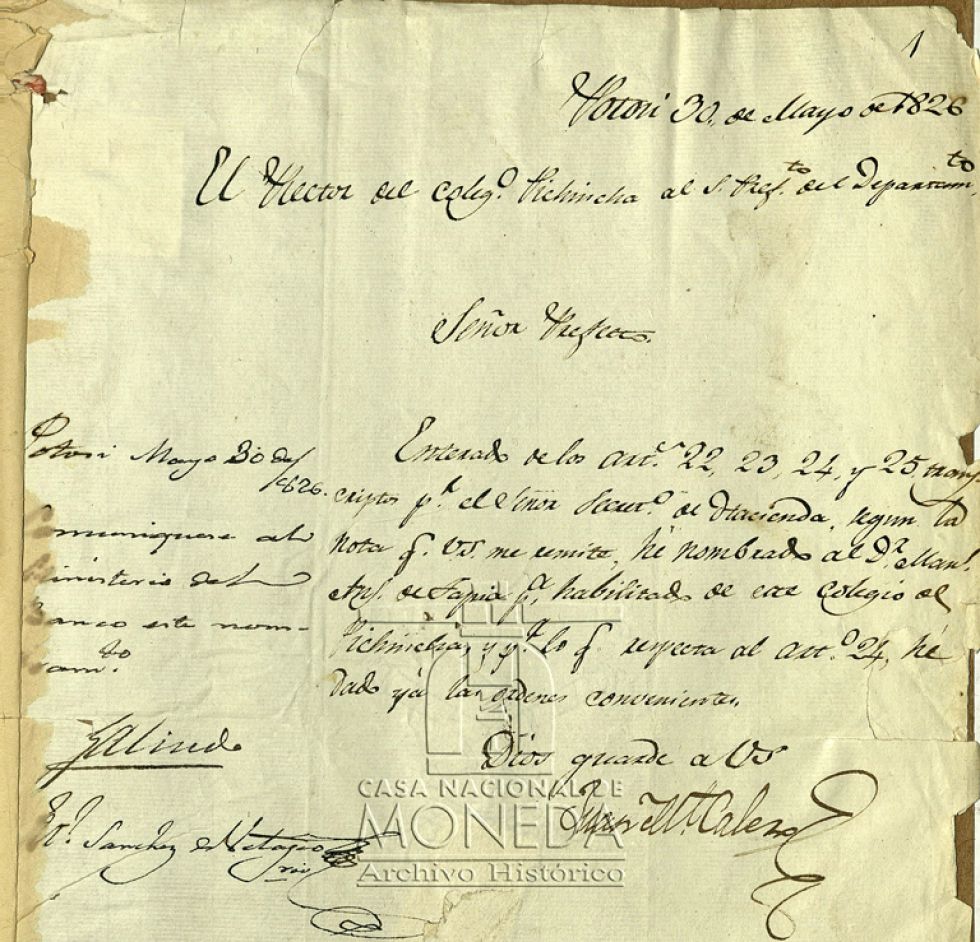 1
Potosi 30,, de Mayo de 1826
El Rector del Coleg.º Pichincha al S. Pref.to del Departam.to
Señor Prefecto.
Enterado de los art.s 22, 23, 24, y 25, trans-
criptos p.r el Señor Secret.º de Hacienda, segun la
nota q.e VS. me remite, hé nombrado al D.r Man.l
de Tapia p.r habilitado de este Colegio de
Pichincha, y p.r lo q.e respecta al art.º 24, hé
dado yá las ordenes convenientes.
Dios guarde a VS
Juan
Potosi Mayo 30 de
1826.
Comuniquese al
Ministerio del
Banco este nom-
bram.to
Galindo
Sanchez
CASA NACIONAL DE
MONEDA
Archivo Histórico